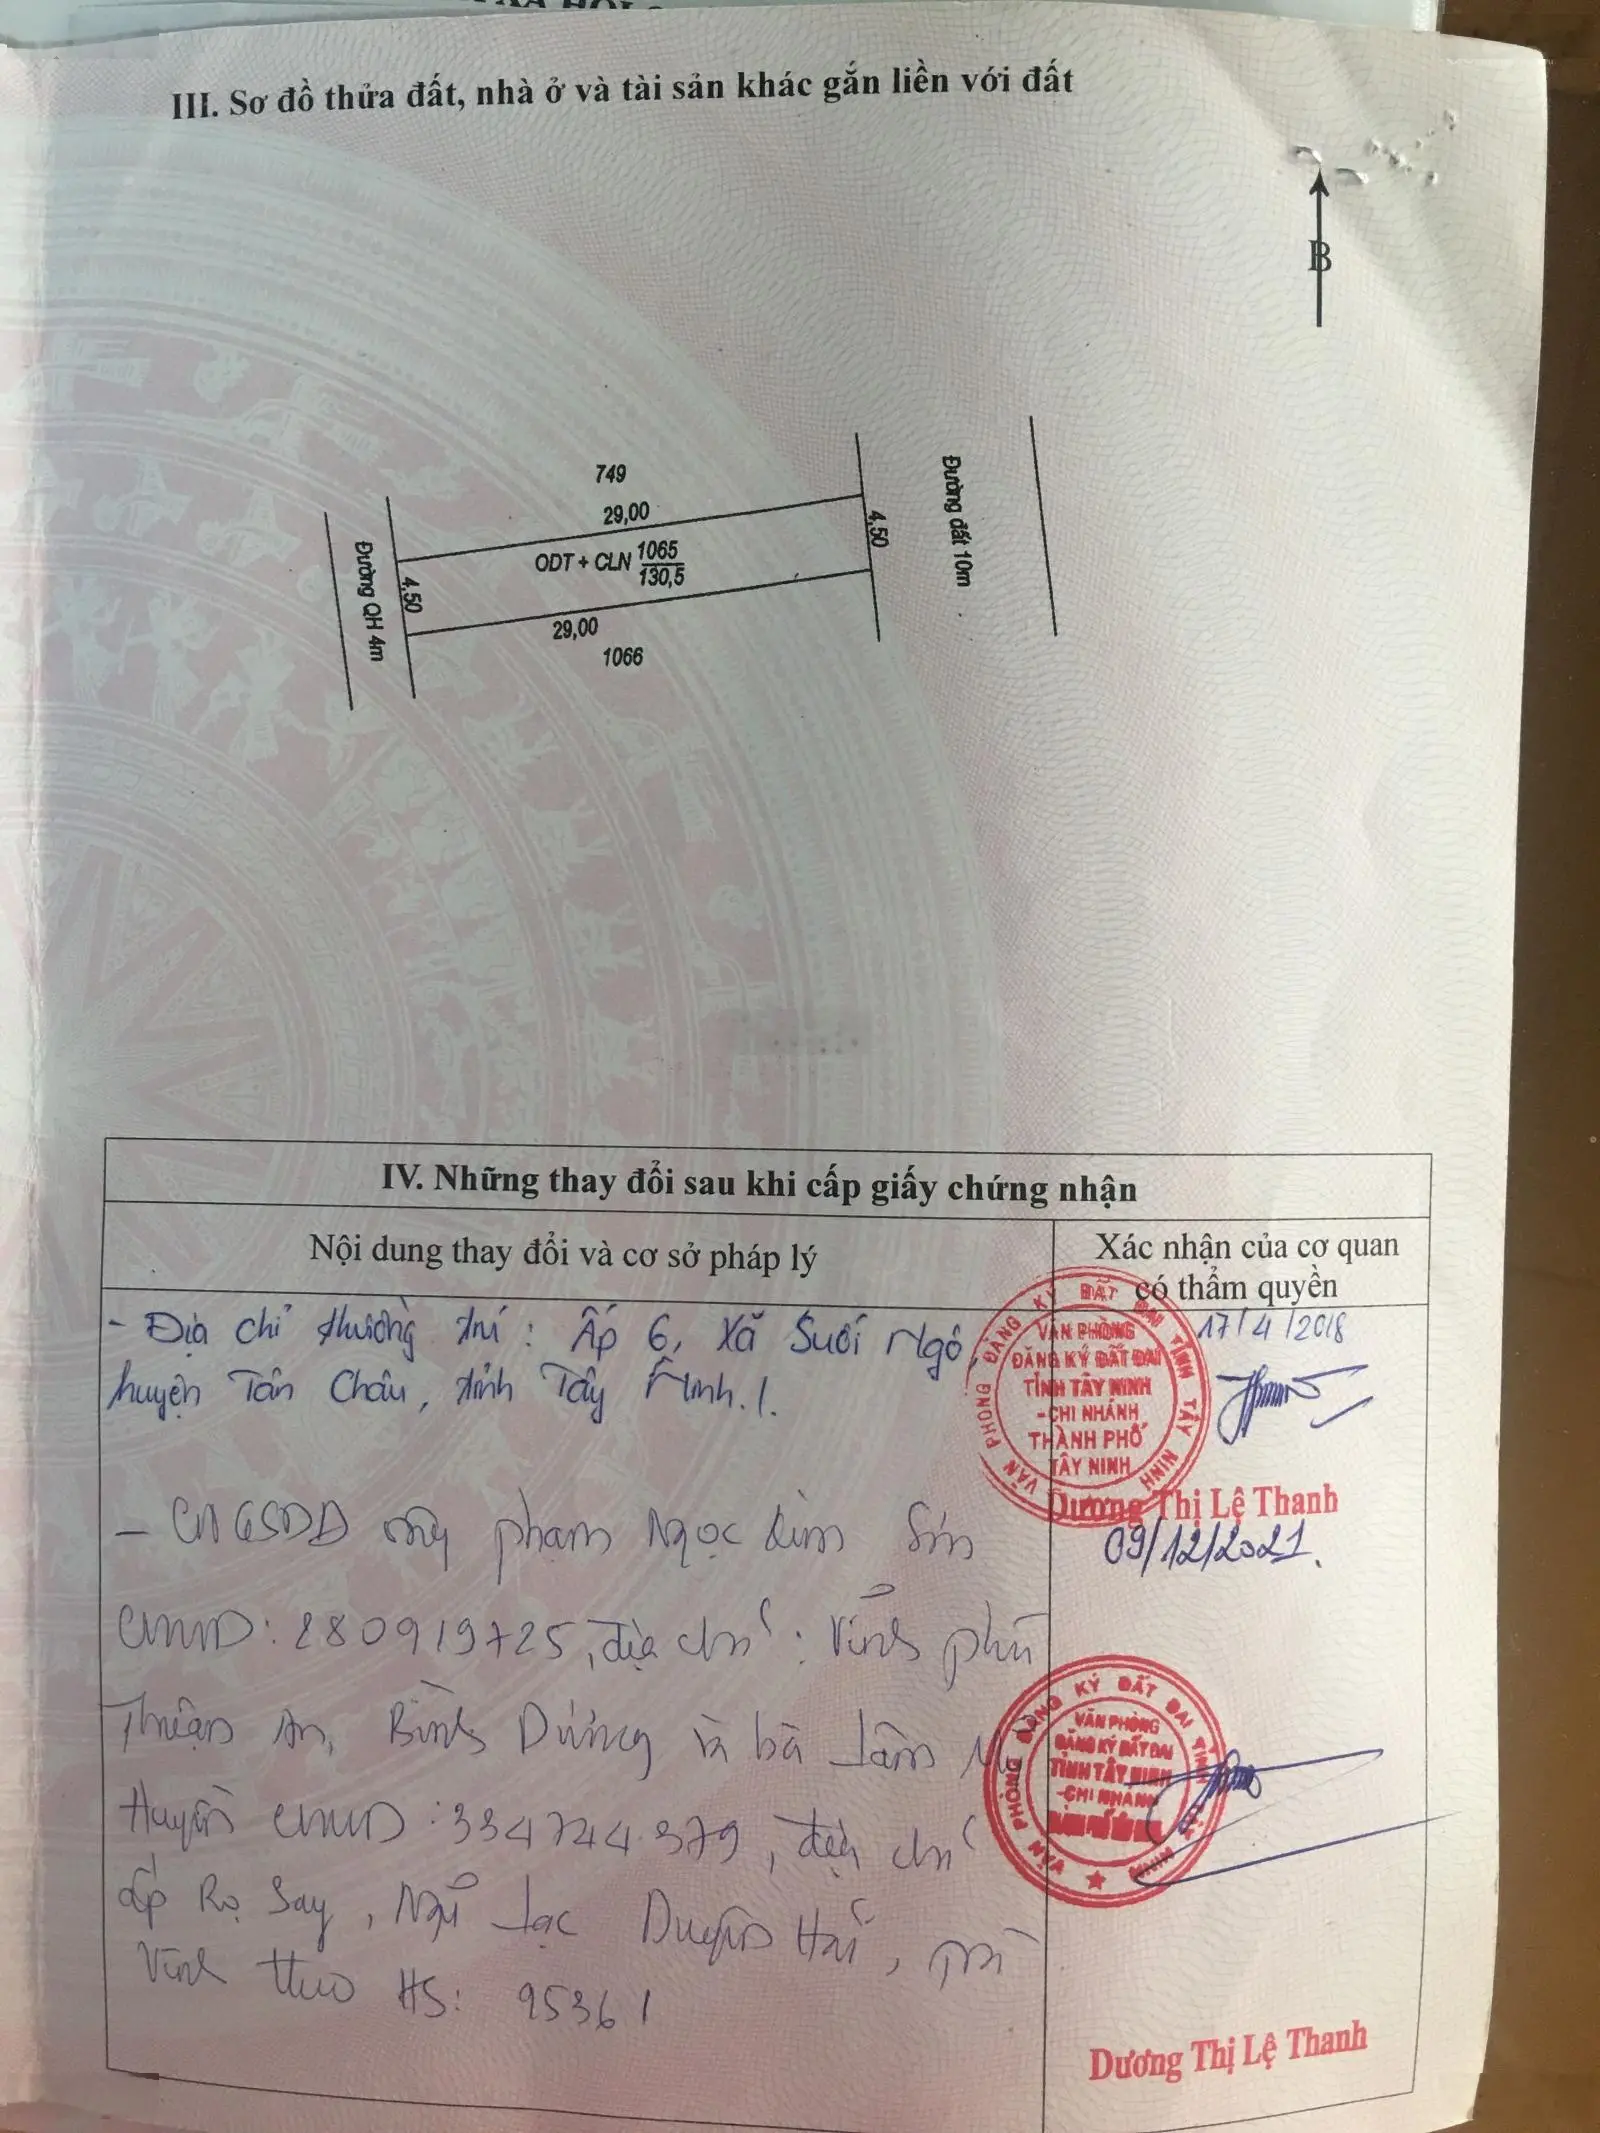 III. Sơ đồ thửa đất, nhà ở và tài sản khác gắn liền với đất
B
749
29,00
4,50
Đường đất 10m
ODT + CLN 1065
130,5
Đường QH 4m
4,50
29,00
1066
IV. Những thay đổi sau khi cấp giấy chứng nhận
Nội dung thay đổi và cơ sở pháp lý
Xác nhận của cơ quan
có thẩm quyền
- Địa chỉ thường trú : Ấp 6, Xã Suối Ngô,
huyện Tân Châu, tỉnh Tây Ninh./.
17/4/2018
VĂN PHÒNG ĐĂNG KÝ ĐẤT ĐAI TỈNH TÂY NINH
VĂN PHÒNG
ĐĂNG KÝ ĐẤT ĐAI
TỈNH TÂY NINH
-CHI NHÁNH
THÀNH PHỐ
TÂY NINH
Dương Thị Lệ Thanh
09/12/2021.
- CNQSDĐ phạm Ngọc Kim Sơn
CMND: 280919725, địa chỉ : Vĩnh phú
Thuận An, Bình Dương và bà Lâm
Huyền CMND : 334744379, địa chỉ
ấp Rọ Say, Ngũ Lạc Duyên Hải, Trà
Vinh theo HS: 95361
VĂN PHÒNG ĐĂNG KÝ ĐẤT ĐAI TỈNH NINH
VĂN PHÒNG
ĐĂNG KÝ ĐẤT ĐAI
TỈNH TÂY NINH
-CHI NHÁNH
Dương Thị Lệ Thanh